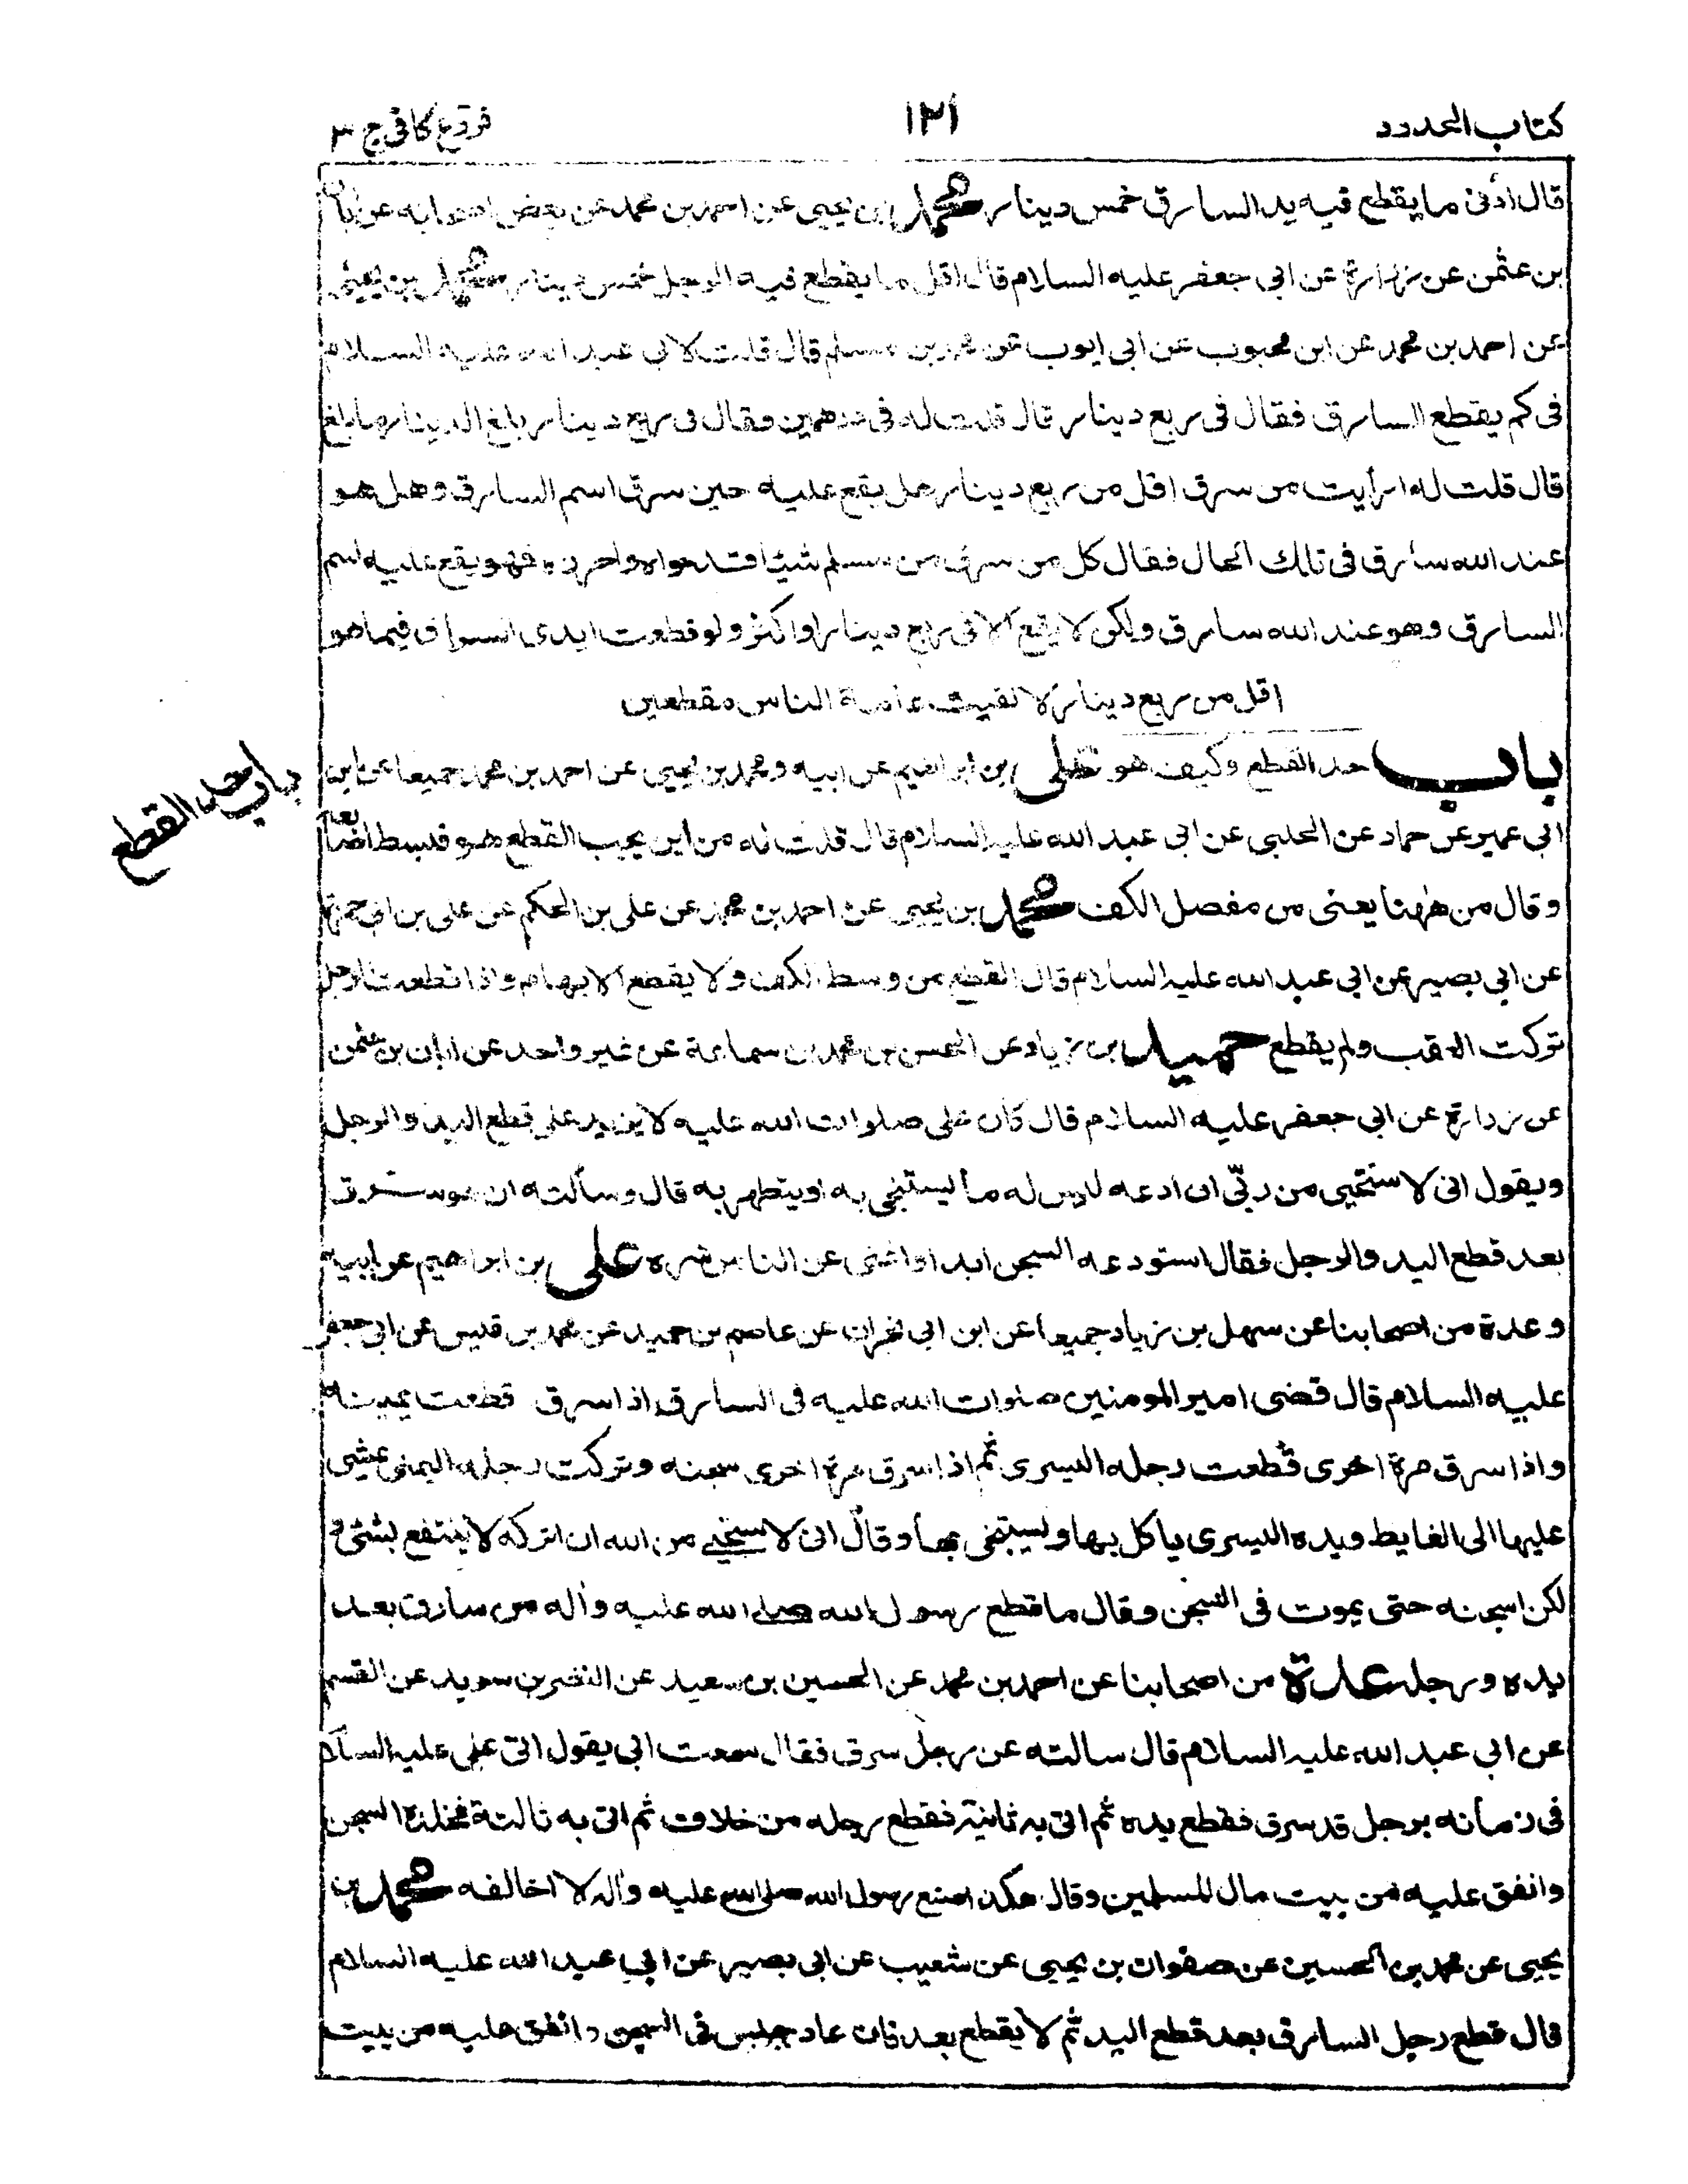 كتاب الحدود
١٢١
فروع كافى ج ٣
قال ادنى ما يقطع فيه يد السارق خمس دينار محمد بن يحيى عن احمد بن محمد عن بعض اصحابه عن ابان
بن عثمن عن زرارة عن ابى جعفر عليه السلام قال اقل ما يقطع فيه الرجل خمس دينار محمد بن يحيى
عن احمد بن محمد عن ابن محبوب عن ابى ايوب عن محمد بن مسلم قال قلت لابى عبد الله عليه السلام
فى كم يقطع السارق فقال فى ربع دينار قال قلت له فى درهمين وقال فى ربع دينار بلغ الدينار ما بلغ
قال قلت له ارأيت من سرق اقل من ربع دينار هل يقع عليه حين سرق اسم السارق وهل هو
عند الله سارق فى تلك الحال فقال كل من سرق من مسلم شيئا قد حواه واحرزه فهو يقع عليه اسم
السارق وهو عند الله سارق ولكن لا يقع الا فى ربع دينار او اكثر ولو قطعت ايدى السراق فيما هو
اقل من ربع دينار لالفيت عامة الناس مقطعين
باب حد القطع وكيف هو على بن ابراهيم عن ابيه ومحمد بن يحيى عن احمد بن محمد جميعا عن ابن
باب حد القطع
ابى عمير عن حماد عن الحلبى عن ابى عبد الله عليه السلام قال قلت له من اين يجب القطع هو فبسط اصابعه
وقال من ههنا يعنى من مفصل الكف محمد بن يحيى عن احمد بن محمد عن على بن الحكم عن على بن ابى حمزة
عن ابى بصير عن ابى عبد الله عليه السلام قال القطع من وسط الكف ولا يقطع الابهام واذا قطعت الرجل
تركت العقب ولم يقطع حميد بن زياد عن الحسن بن محمد بن سماعة عن غير واحد عن ابان بن عثمن
عن زرارة عن ابى جعفر عليه السلام قال كان على صلوات الله عليه لا يزيد على قطع اليد والرجل
ويقول انى لاستحيى من ربّى ان ادعه ليس له ما يستنجى به او يتطهر به قال وسألته ان هو سرق
بعد قطع اليد والرجل فقال استودعه السجن ابدا واغنى عن الناس شره على بن ابراهيم عن ابيه
وعدة من اصحابنا عن سهل بن زياد جميعا عن ابن ابى نجران عن عاصم بن حميد عن محمد بن قيس عن ابى جعفر
عليه السلام قال قضى امير المومنين صلوات الله عليه فى السارق اذا سرق قطعت يمينه
واذا سرق مرة اخرى قطعت رجله اليسرى ثم اذا سرق مرة اخرى سجنه وتركت رجله اليمنى يمشى
عليها الى الغايط ويده اليسرى ياكل بها ويستنجى بها وقال انى لاستحيى من الله ان اتركه لا ينتفع بشئ و
لكن اسجنه حتى يموت فى السجن وقال ما قطع رسول الله صلى الله عليه وآله من سارق بعد
يده ورجله عدة من اصحابنا عن احمد بن محمد عن الحسين بن سعيد عن النضر بن سويد عن القسم
عن ابى عبد الله عليه السلام قال سالته عن رجل سرق فقال سمعت ابى يقول اتى على عليه السلام
فى زمانه برجل قد سرق فقطع يده ثم اتى به ثانية فقطع رجله من خلاف ثم اتى به ثالثة فخلده السجن
وانفق عليه من بيت مال المسلمين وقال هكذا صنع رسول الله صلى الله عليه وآله لا اخالفه محمد بن
يحيى عن محمد بن الحسين عن صفوان بن يحيى عن شعيب عن ابى بصير عن ابى عبد الله عليه السلام
قال قطع رجل السارق بعد قطع اليد ثم لا يقطع بعد فان عاد حبس فى السجن وانفق عليه من بيت